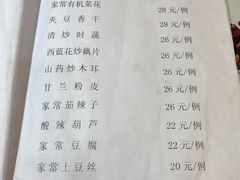 家常有机菜花 28 元/例
夹豆香干 28 元/例
清炒时蔬 26 元/例
西蓝花炒藕片 26 元/例
山药炒木耳 26 元/例
甘兰粉皮 26 元/例
家常茄辣子 26 元/例
酸辣葫芦 22 元/例
家常豆腐 22 元/例
家常土豆丝 20 元/例